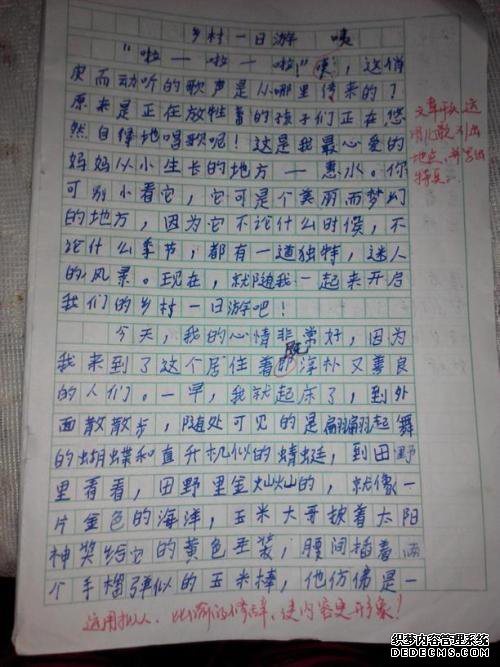 乡村一日游 咦
“啦—啦—啦!”咦,这俏
皮而动听的歌声是从哪里传来的?
原来是正在放牲畜的孩子们正在悠
然自得地唱歌呢!这是我最心爱的
妈妈从小生长的地方—惠水。你
可别小看它,它可是个美丽而梦幻
的地方,因为它不论什么时候,不
论什么季节,都有一道独特,迷人
的风景。现在,就随我一起来开启
我们的乡村一日游吧!
今天,我的心情非常好,因为
我来到了这个居住着既淳朴又善良
的人们。一早,我就起床了,到外
面散散步,随处可见的是翩翩起舞
的蝴蝶和直升机似的蜻蜓,到田野
里看看,田野里金灿灿的,就像一
片金色的海洋,玉米大哥披着太阳
神奖给它的黄色圣装,腰间插着两
个手榴弹似的玉米棒,他仿佛是一
文章开头
地点,并写出
特点。
运用拟人、比喻的修辞,使内容更形象!
织梦内容管理系统
DEDECMS.COM